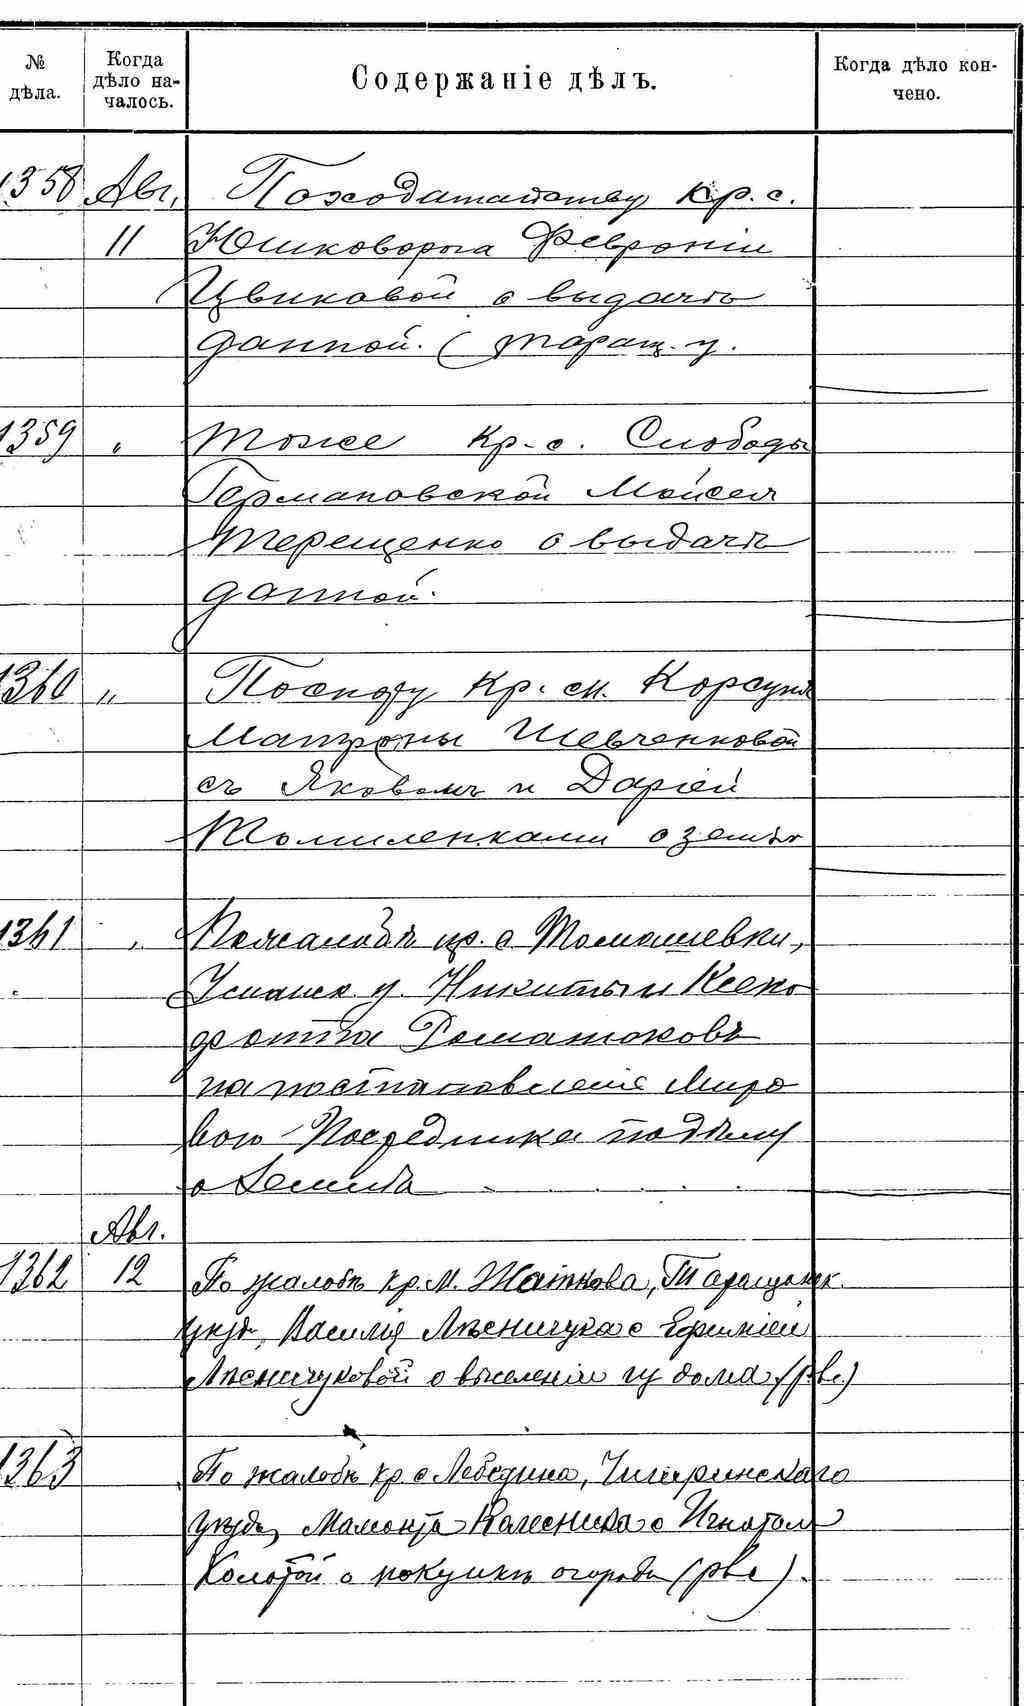 № дѣла.
Когда дѣло на-чалось.
Содержаніе дѣлъ.
Когда дѣло кон-чено.
1358 Авг. По ходатайству кр. с.
11 Юшковорога Февроніи
Цвиковой о выдачѣ
данной. (Таращ. у.
1359 " Тоже кр. с. Слободы
Германовской Мойсея
Терещенко о выдачѣ
данной.
1360 " По спору кр. м. Корсуня
Матроны Шевченковой
съ Яковомъ и Даріей
Томиленками о землѣ
1361 " По жалобѣ кр. с Томашевки,
Уманск. у. Никиты и Ксено
фонта Романюковъ
на постановленіе Миро
вого Посредника по дѣлу
о землѣ
Авг.
1362 12 По жалобѣ кр. м. Жашкова, Таращанск.
уѣзда, Василія Лѣсничука с Ефиміей
Лѣсничуковой о выселеніи изъ дома. (рвс.)
1363 По жалобѣ кр с Лебедина, Чигиринскаго
уѣзда, Мамонта Колесника с Игнатом
Колотой о покупкѣ огорода (рвс).